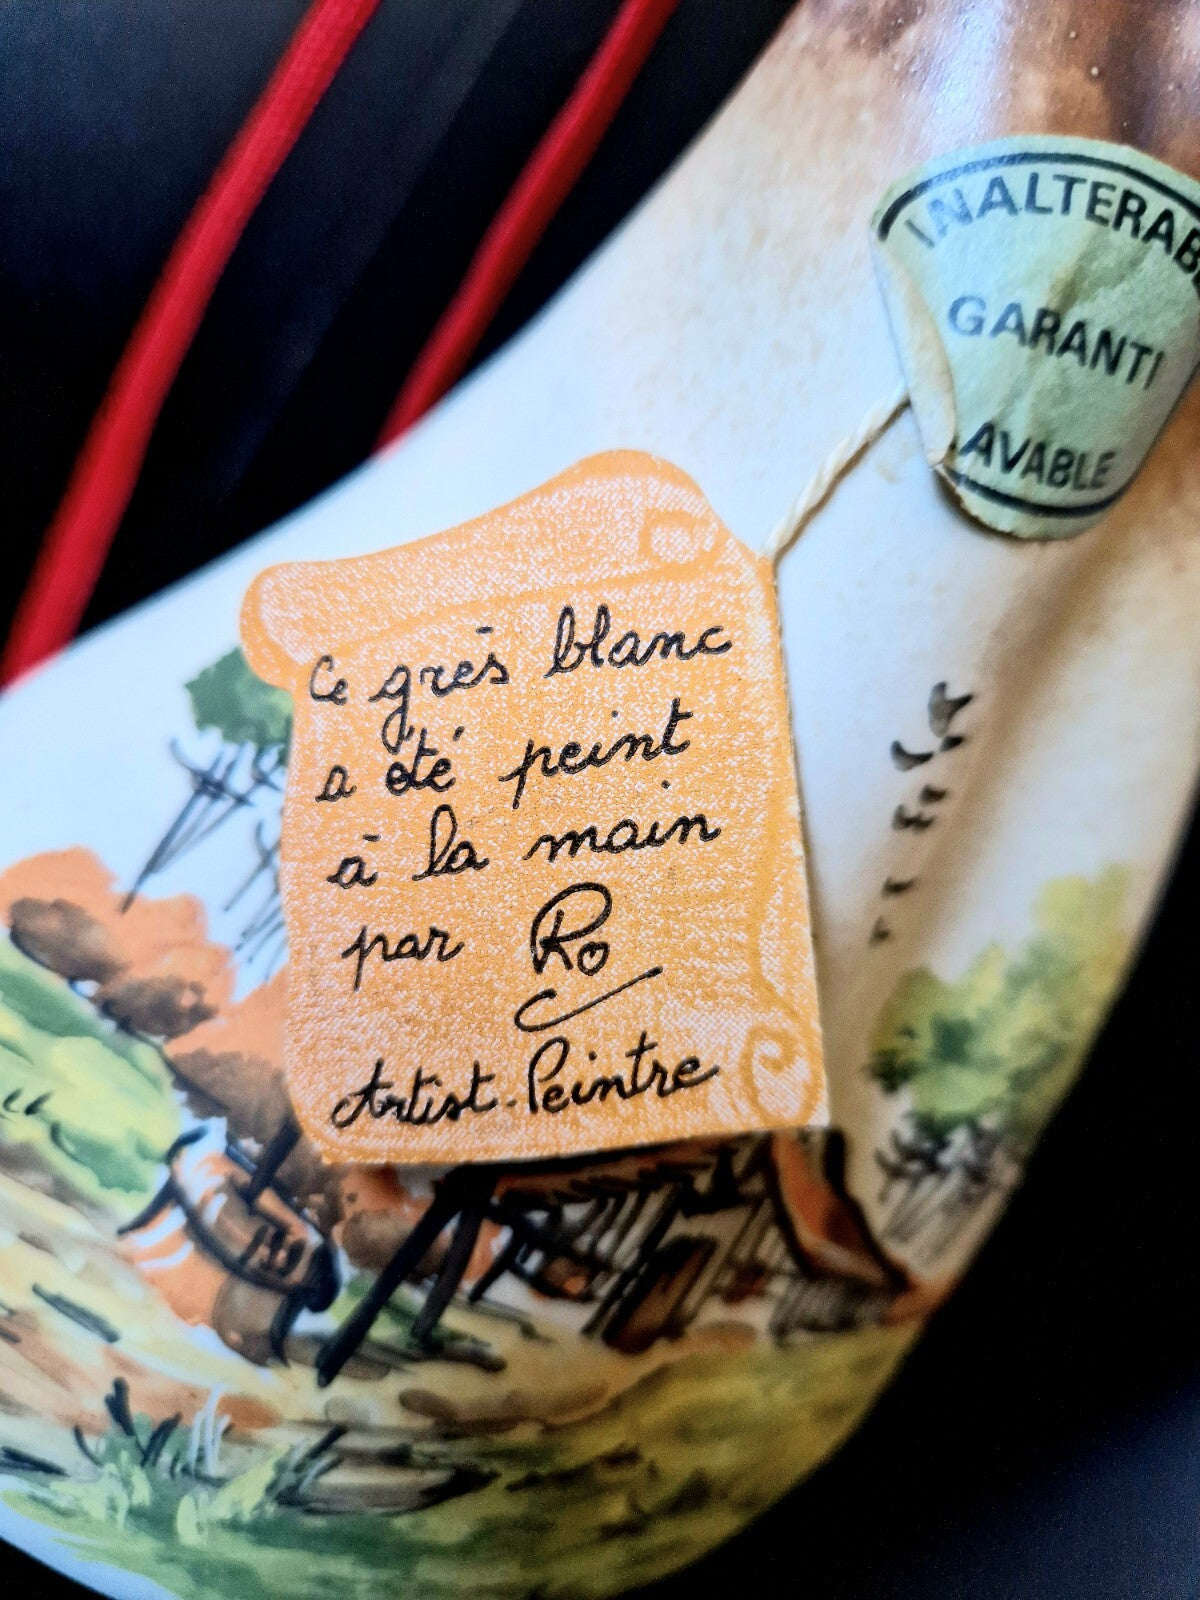 INALTERAB
GARANTI
AVABLE
Ce grès blanc
a été peint
à la main
par Ro
Artist-Peintre